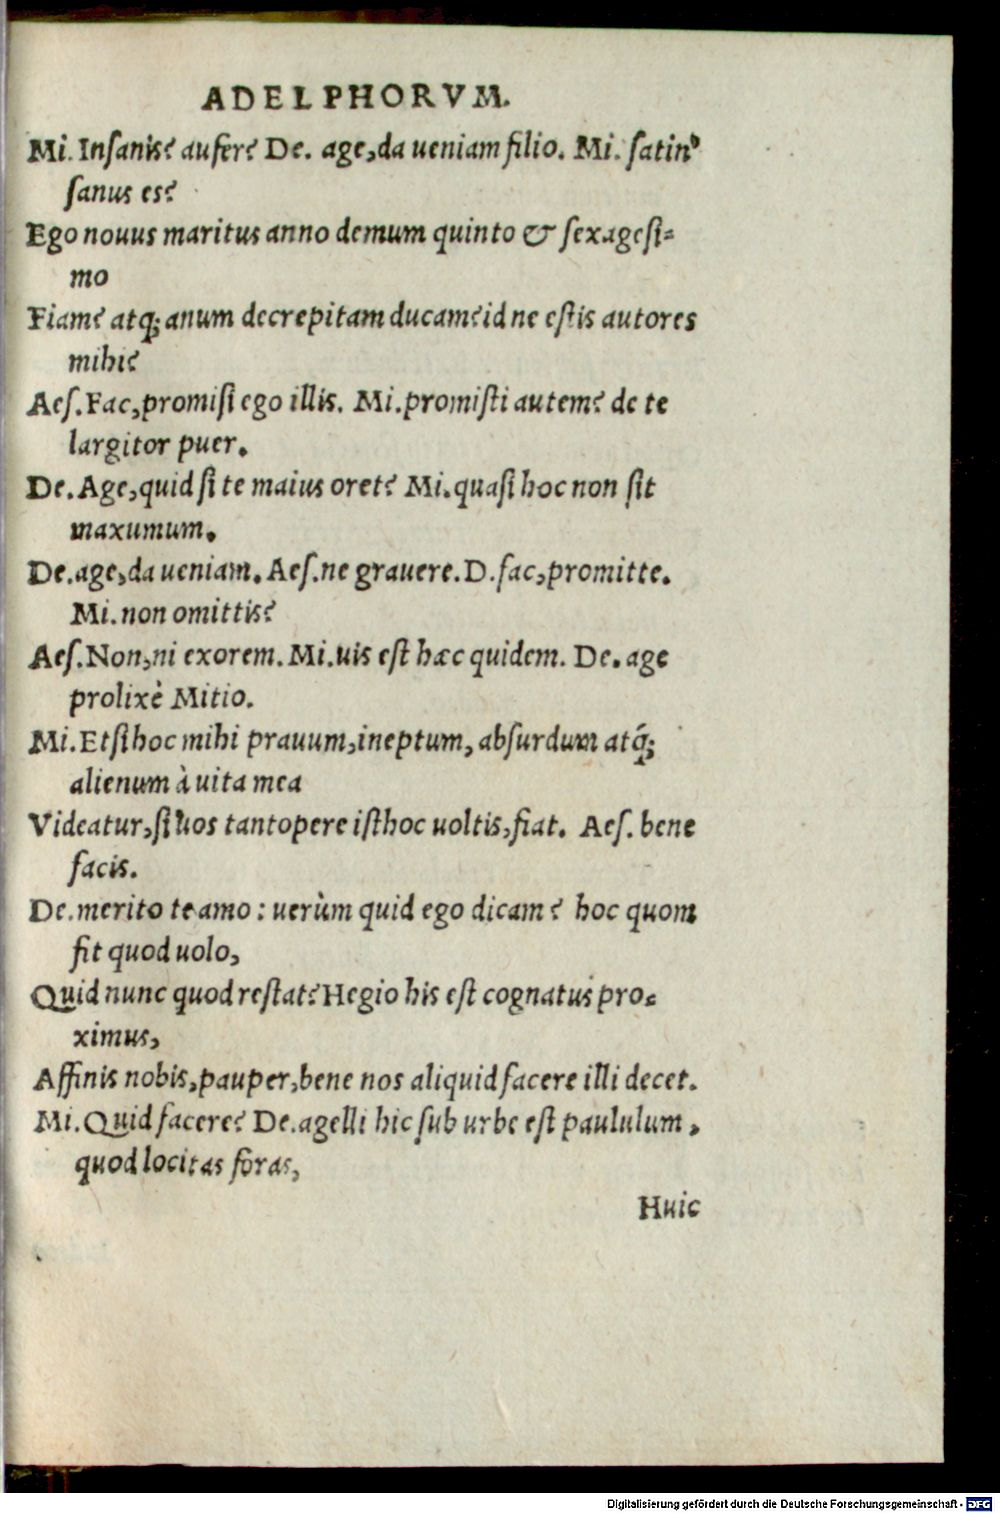 ADELPHORVM.
Mi. Inſanis? aufer? De. age, da ueniam filio. Mi. ſatin'
ſanus es?
Ego nouus maritus anno demum quinto & ſexageſi-
mo
Fiam? atq; anum decrepitam ducam? id ne eſtis autores
mihi?
Aeſ. Fac, promiſi ego illis. Mi. promiſti autem? de te
largitor puer.
De. Age, quid ſi te maius oret? Mi. quaſi hoc non ſit
maxumum.
De. age, da ueniam. Aeſ. ne grauere. D. fac, promitte.
Mi. non omittis?
Aeſ. Non, ni exorem. Mi. uis eſt hæc quidem. De. age
prolixè Mitio.
Mi. Etſi hoc mihi prauum, ineptum, abſurdum atq́;
alienum à uita mea
Videatur, ſi uos tantopere iſthoc uoltis, fiat. Aeſ. bene
facis.
De. merito te amo: uerùm quid ego dicam? hoc quom
fit quod uolo,
Quid nunc quod reſtat? Hegio his eſt cognatus pro-
ximus,
Affinis nobis, pauper, bene nos aliquid facere illi decet.
Mi. Quid facere? De. agelli hic ſub urbe eſt paululum,
quod locitas foras,
Huic
Digitalisierung gefördert durch die Deutsche Forschungsgemeinschaft - DFG